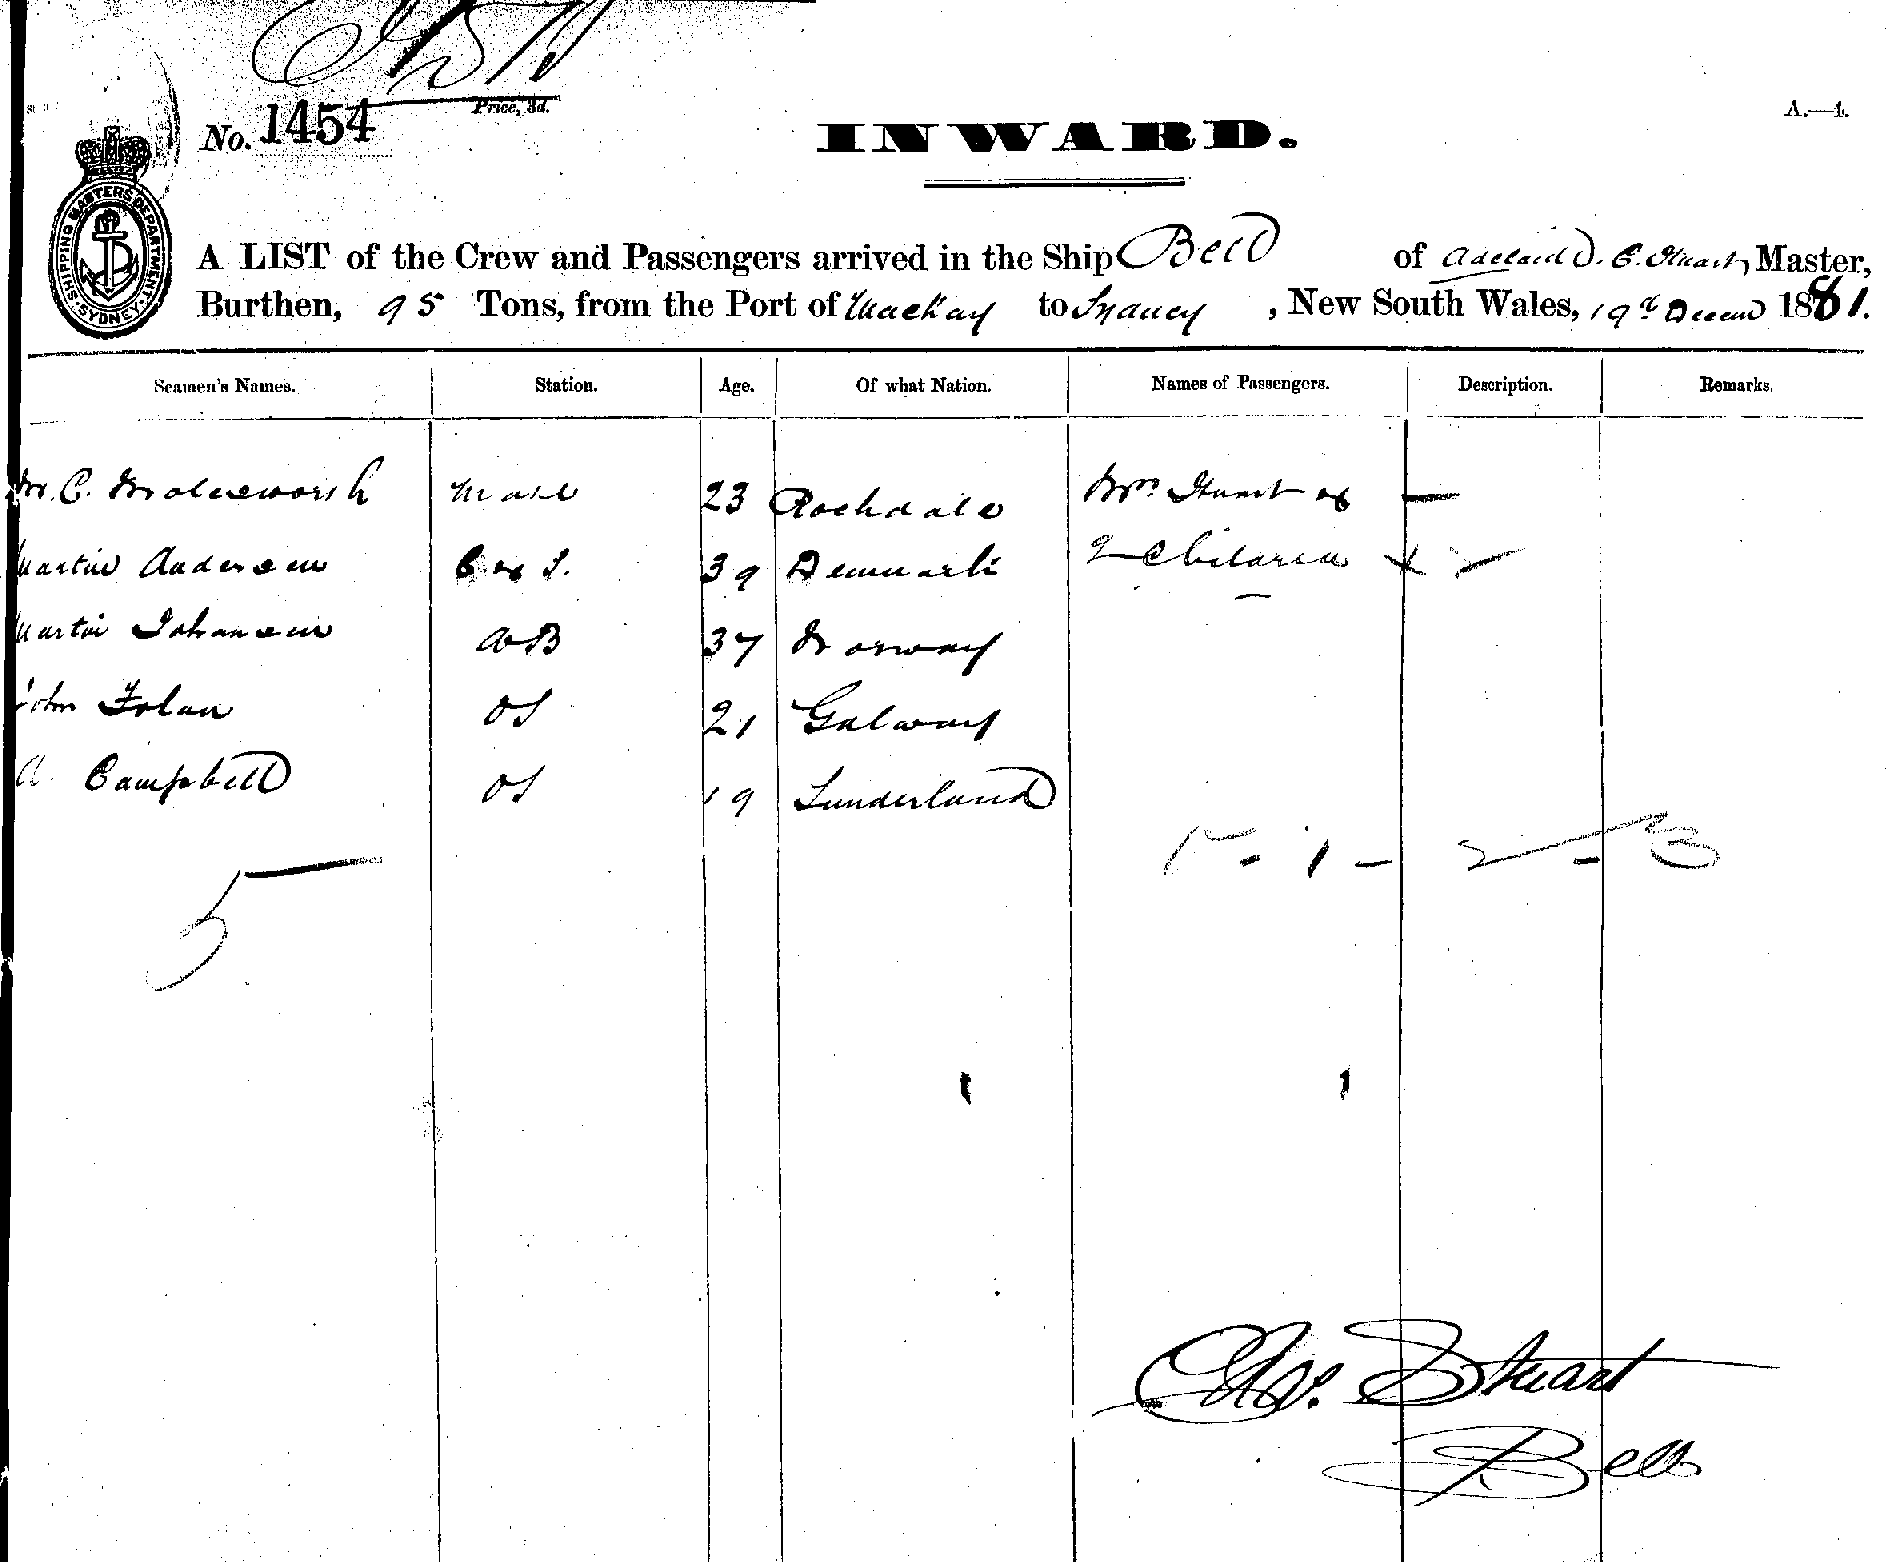 Price, 3d.
No. 1454
A.—4.
INWARD.
SHIPPING MASTERS DEPARTMENT SYDNEY
A LIST of the Crew and Passengers arrived in the Ship Bell of Adelaide C. Stuart, Master,
Burthen, 95 Tons, from the Port of Mackay to Sydney, New South Wales, 19th Decem 1881.
Seamen's Names. Station. Age. Of what Nation. Names of Passengers. Description. Remarks.
C. Molesworth Mate 23 Rochdale Mrs Stuart &
Martin Andersen C & S. 39 Denmark 2 Children
Martin Johansen AB 37 Norway
John Folan OS 21 Galway
A. Campbell OS 19 Sunderland
1 - 2 - 3
5
Chs. Stuart
Bell